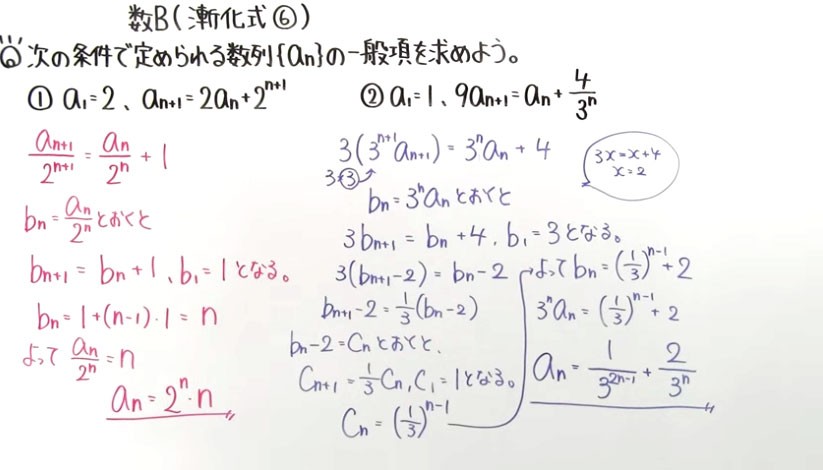 数B(漸化式⑥)
Q次の条件で定められる数列{an}の一般項を求めよう。
① a₁=2、an+1=2an+2^(n+1)
② a₁=1、9an+1=an+4/3^n
an+1/2^(n+1)=an/2^n+1
bn=an/2^nとおくと
bn+1=bn+1、b₁=1となる。
bn=1+(n-1)・1=n
よって an/2^n=n
an=2^n・n
3(3^(n+1)an+1)=3^n an+4
3×③
3x=x+4
x=2
bn=3^n anとおくと
3bn+1=bn+4、b₁=3となる。
3(bn+1-2)=bn-2
bn+1-2=1/3(bn-2)
bn-2=Cnとおくと、
Cn+1=1/3Cn, C₁=1となる。
Cn=(1/3)^(n-1)
よってbn=(1/3)^(n-1)+2
3^n an=(1/3)^(n-1)+2
an=1/3^(2n-1)+2/3^n